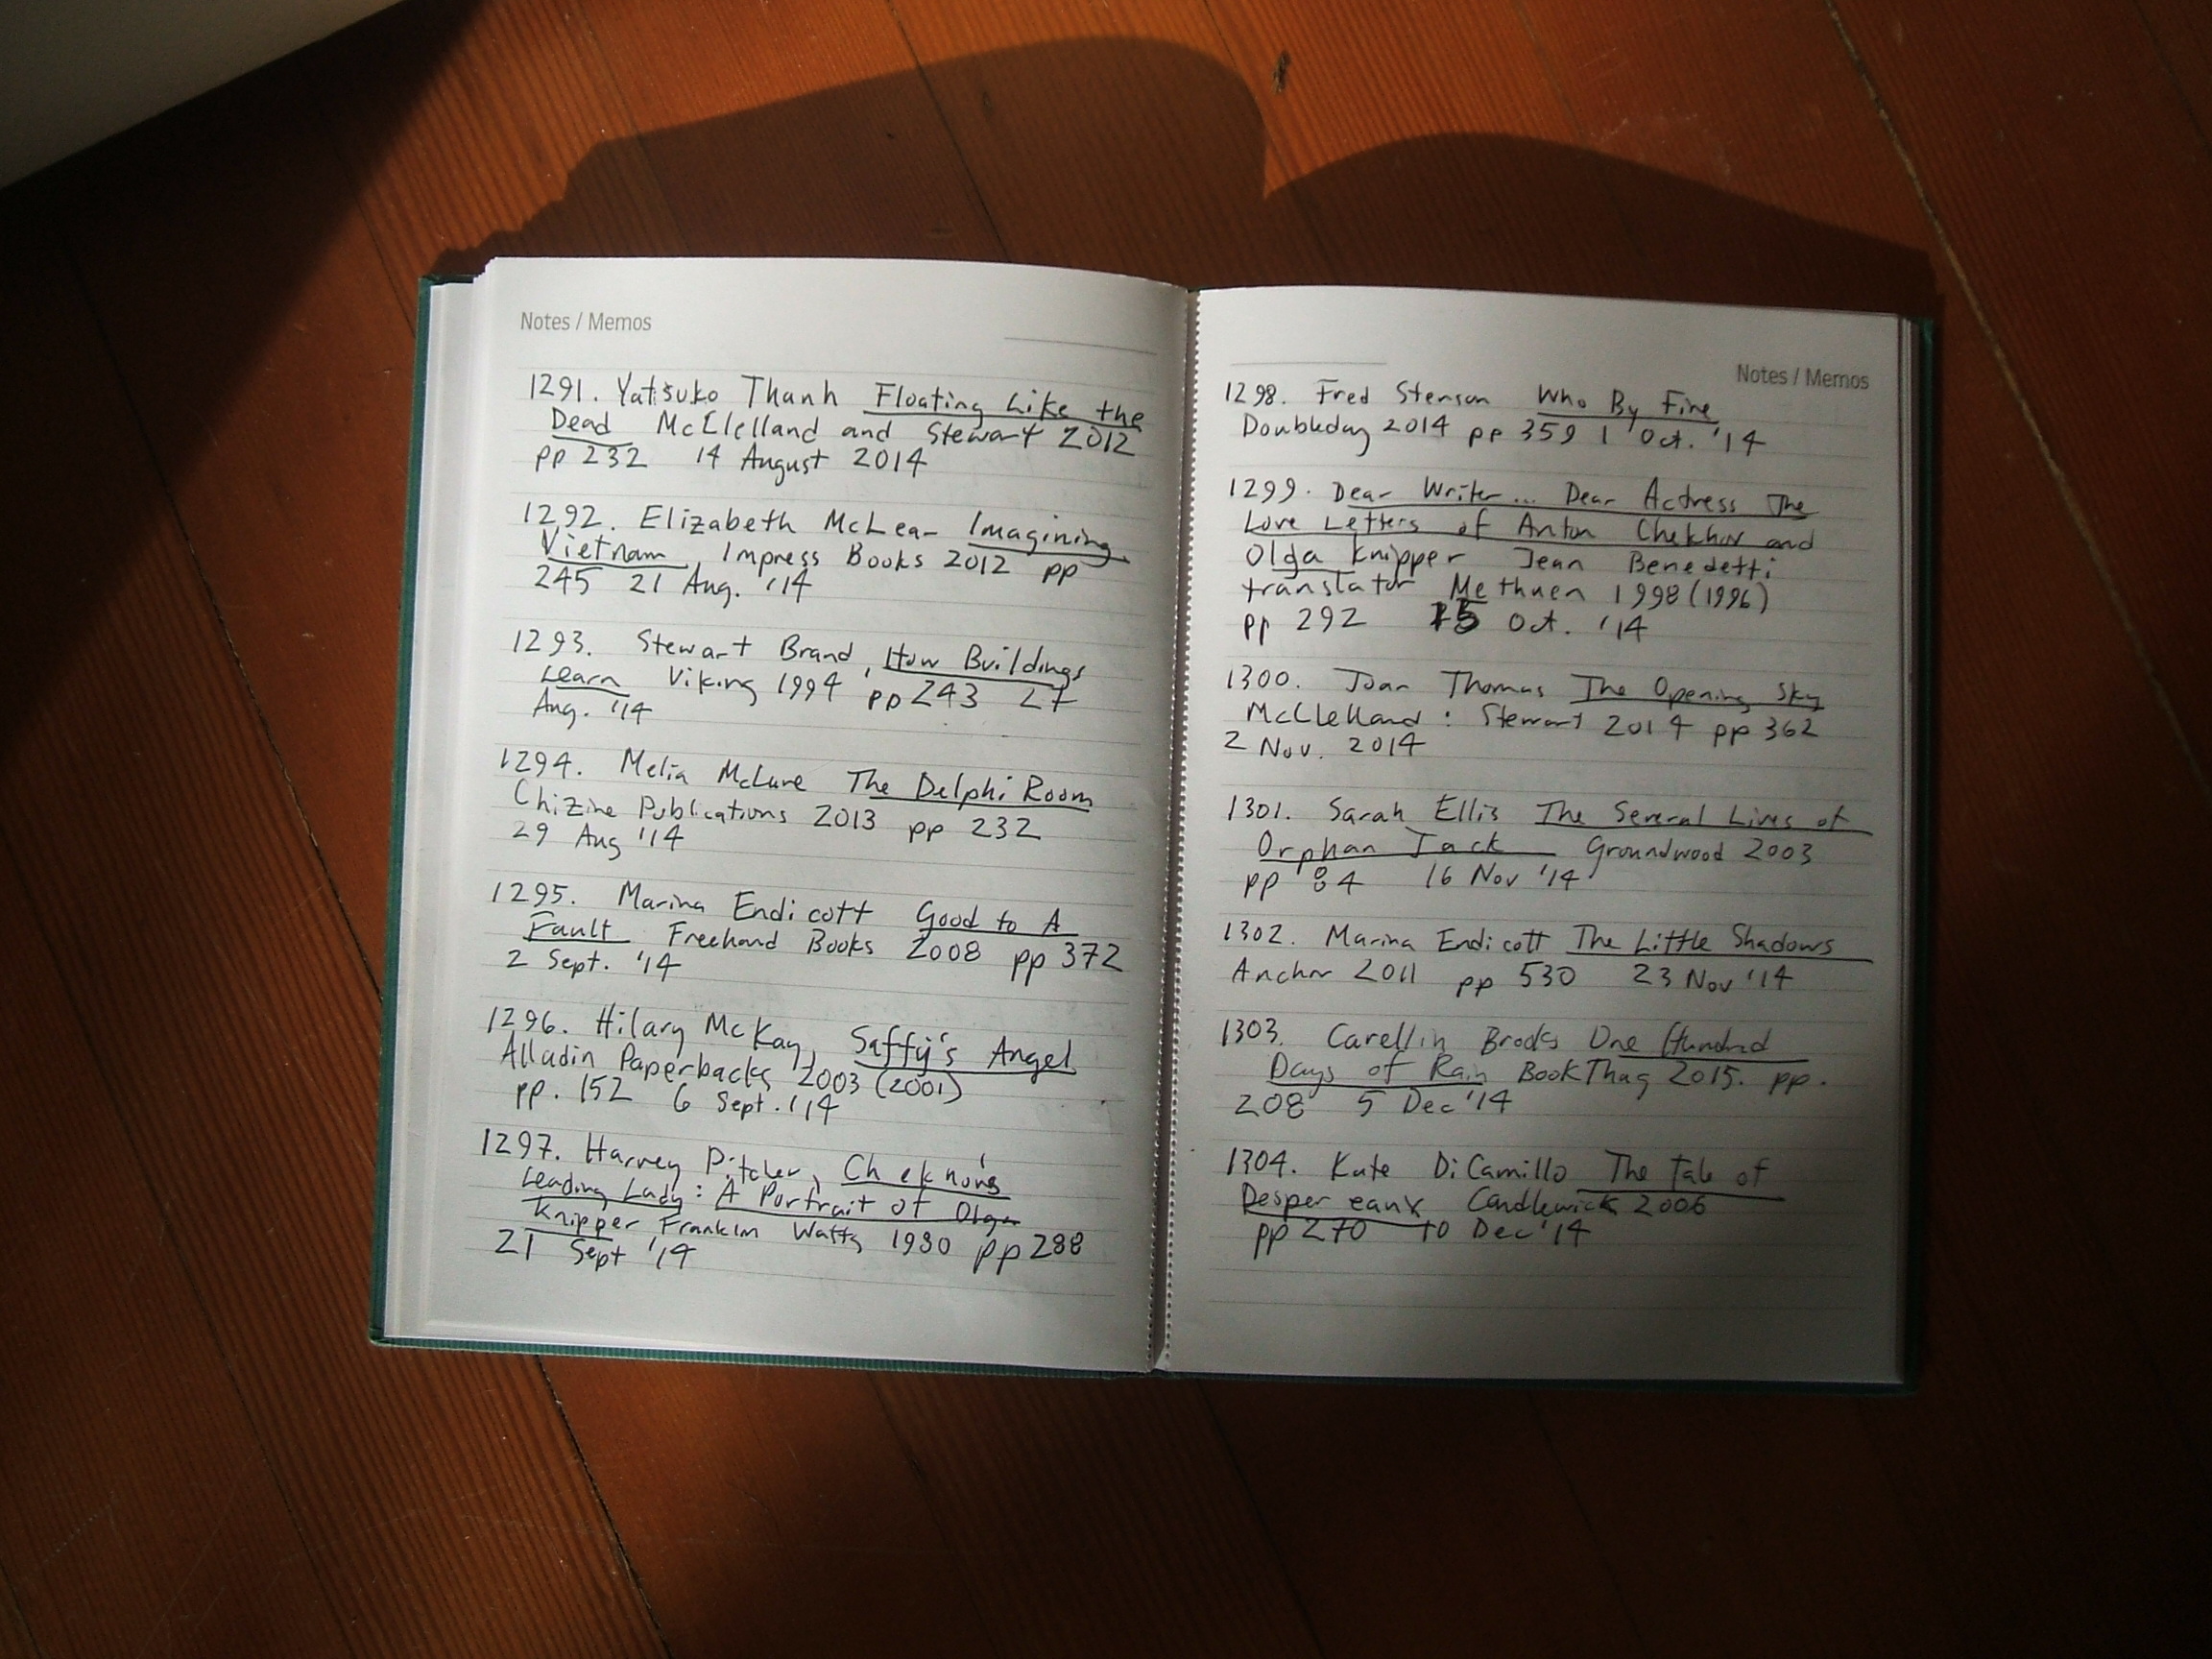 Notes / Memos
1291. Yatsuko Thanh Floating Like the
Dead McClelland and Stewart 2012
pp 232 14 August 2014
1292. Elizabeth McLean Imagining
Vietnam Impress Books 2012 pp
245 21 Aug. '14
1293. Stewart Brand, How Buildings
Learn Viking 1994 pp 243 27
Aug. '14
1294. Melia McLure The Delphi Room
Chizine Publications 2013 pp 232
29 Aug '14
1295. Marina Endicott Good to A
Fault Freehand Books 2008 pp 372
2 Sept. '14
1296. Hilary McKay, Saffy's Angel
Alladin Paperbacks 2003 (2001)
pp. 152 6 Sept. '14
1297. Harvey Pitcher, Chekhov's
Leading Lady: A Portrait of Olga
Knipper Franklin Watts 1980 pp 288
21 Sept '14
Notes / Memos
1298. Fred Stenson Who By Fire
Doubleday 2014 pp 359 1 Oct. '14
1299. Dear Writer... Dear Actress The
Love Letters of Anton Chekhov and
Olga Knipper Jean Benedetti
translator Methuen 1998 (1996)
pp 292 15 Oct. '14
1300. Joan Thomas The Opening Sky
McClelland : Stewart 2014 pp 362
2 Nov. 2014
1301. Sarah Ellis The Several Lives of
Orphan Jack Groundwood 2003
pp 84 16 Nov '14
1302. Marina Endicott The Little Shadows
Anchor 2011 pp 530 23 Nov '14
1303. Carellin Brooks One Hundred
Days of Rain BookThug 2015. pp.
208 5 Dec '14
1304. Kate DiCamillo The Tale of
Despereaux Candlewick 2006
pp 270 10 Dec '14